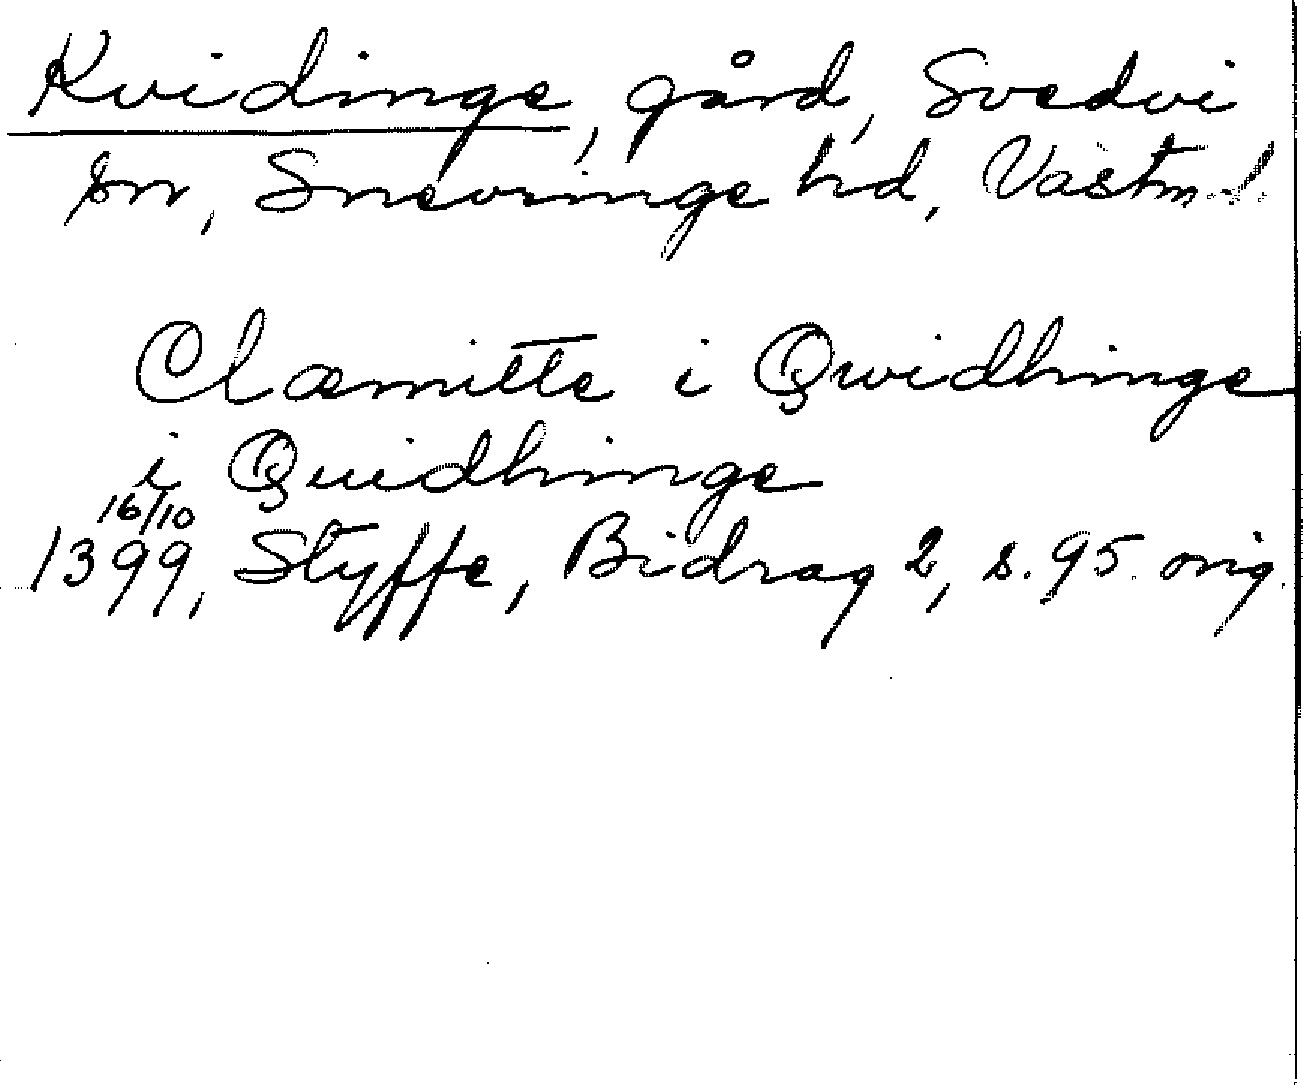 Kvidinge, gård, Svedvi
sn, Snevringe hd, Västml.
Clæmitte i Qwidhinge
i Quidhinge
16/10
1399, Styffe, Bidrag 2, s. 95. orig.